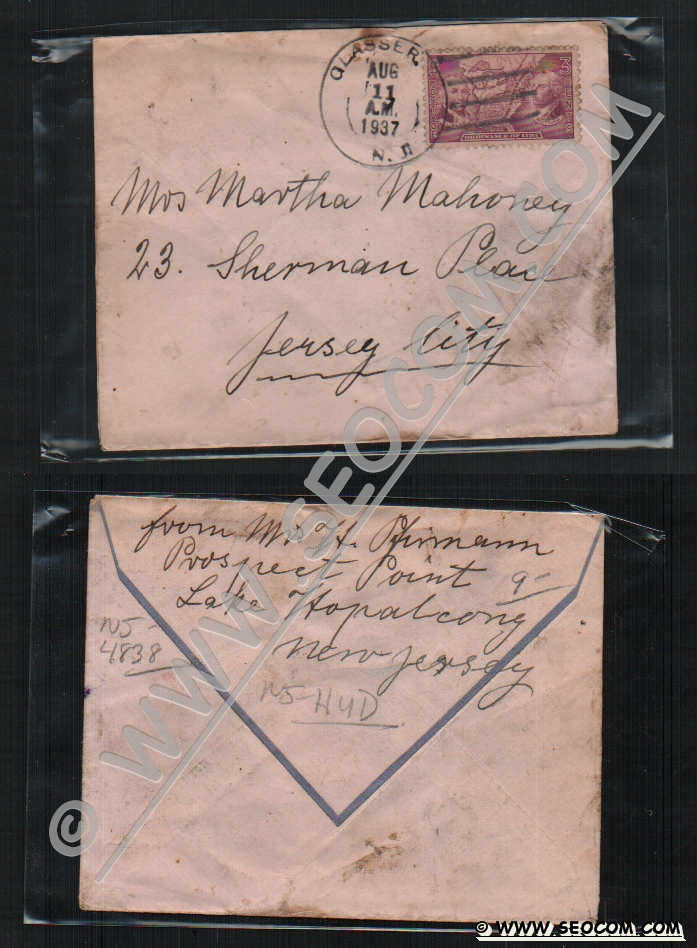 GLASSER,
AUG
11
A.M.
1937
N. J.
3
ORDINANCE OF 1787
Mrs Martha Mahoney
23. Sherman Place
Jersey City
from Mrs H. Pfirmann
Prospect Point
9-
Lake Hopatcong
New Jersey
NJ-
4838
NJ-HUD
© WWW.SEOCOM.COM
© WWW.SEOCOM.COM